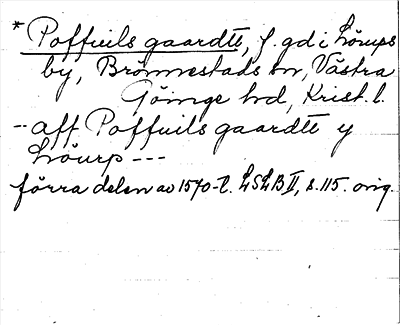 * Poffuils gaardtt, f. gd i Lörups
by, Brönnestads sn, Västra
Göinge hd, Krist. l.
-- aff Poffuils gaardtt y
Löurp ---
förra delen av 1570-t. LSLB II, s. 115. orig.